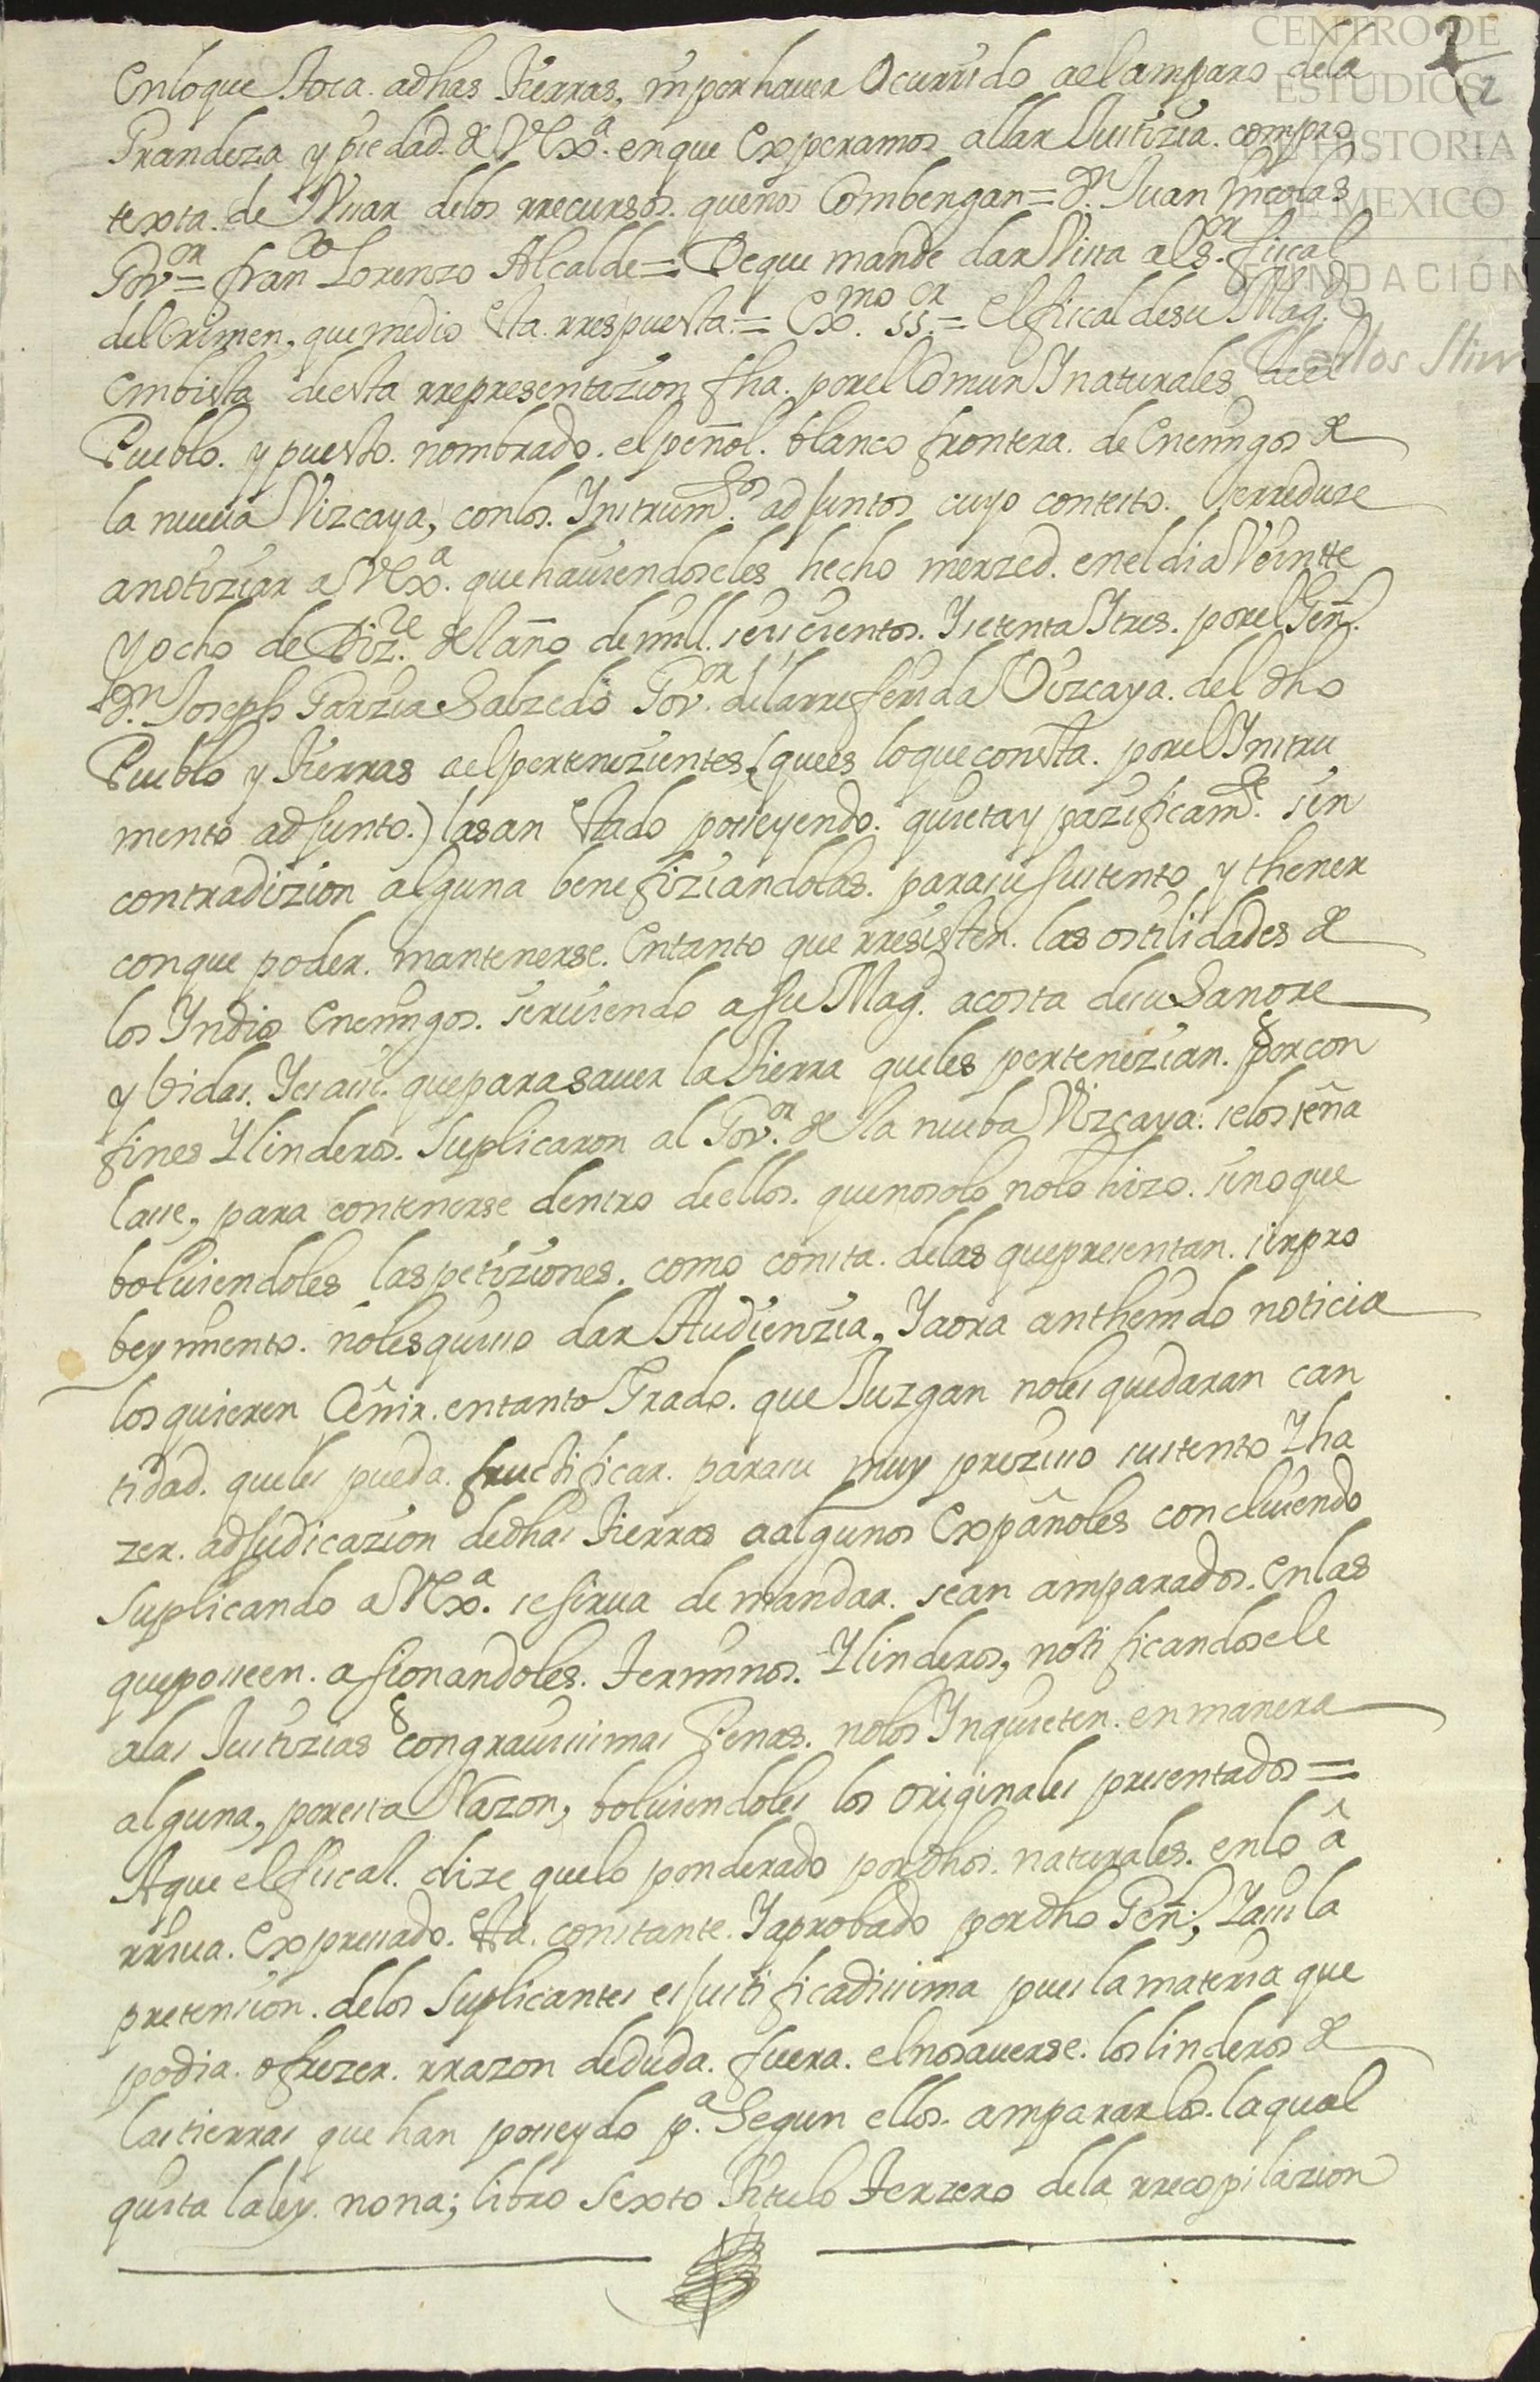 2
2
CENTRO DE
ESTUDIOS
DE HISTORIA
DE MEXICO
FUNDACIÓN
Carlos Slim
Enloque toca. adhas tierras, niporhauer Ocurrido aelamparo dela
Grandeza y piedad. de VExª. enque Experamos allar Justizia. compro
texta. de Vsar delos rrecursos. quenos Combengan = Dn. Juan Nicolas
Govor. = Franco Lorenzo Alcalde = Deque mande dar Vista als.or fiscal
delCrimen, quemedio esta. rrespuesta = Exmo. ss.or = Elfiscal desu Magd.
embista deesta rrepresentazion fha. porelComun Ynaturales deel
Pueblo. y puesto. nombrado. elpeñol. blanco frontera. de Enemigos de
la nueua Vizcaya, conlos. Ynstrumtos. adjuntos cuyo contesto. serreduze
anotiziar a VExª. quehauiendoseles hecho merzed. eneldia Veintte
yocho de Dizre. delaño demill. seisçientos. Ysetenta Ytres. porel Genl.
Dn. Joseph Garzia Salzedo Govor. delarreferida Vizcaya. del dho
Pueblo y tierras aelpertenezientes, (quees loqueconsta. porel Ynstru
mento adjunto.) lasan estado poseyendo. quieta y pazificamte. sin
contradizion alguna benefiziandolas. parasu sustento y thener
conque poder. mantenerse. Entanto que rresisten. las ostilidades de
los Yndios Enemigos. siruiendo asu Magd. acosta desu Sangre
y bidas. Yesasi. queparasauer latierra queles pertenezian. porcon
fines Ylinderos. suplicaron al Govor. de la nueba Vizcaya: selos seña
lase, para contenerse dentro deellos. quenosolo nolo hizo. sinoque
boluiendoles laspetiziones. como consta. delas quepresentan. sinpro
beymiento. nolesquiso dar Audienzia, Yaora anthenido noticia
losquieren Ceñir. entanto Grado. que Juzgan noles quedaran can
tidad. queles pueda. fructificar. parasu muy preziso sustento Yha
zer. adjudicazion dedhas tierras aalgunos Españoles concluiendo
suplicando a VExª. sesirua demandar. sean amparados. Enlas
queposseen. asignandoles. terminos. Ylinderos, notificandosele
alas Justizias congrauissimas Penas. nolos Ynquieten. enmanera
alguna, poresta Razon, boluiendoles los originales presentados =
Aque elfiscal. dize quelo ponderado pordhos. naturales. enlo â
rriua. expresado. esta. constante. Yaprobado pordho Genl., Yasi la
pretension. delos suplicantes esjustificadissima pues la materia que
podia. ofrezer. rrazon deduda. fuera. elnosauerse. loslinderos de
lastierras que han poseydo pª. Segun ellos. ampararlos. laqual
quita laley. nona; libro sexto titulo terzero dela rrecopilazion